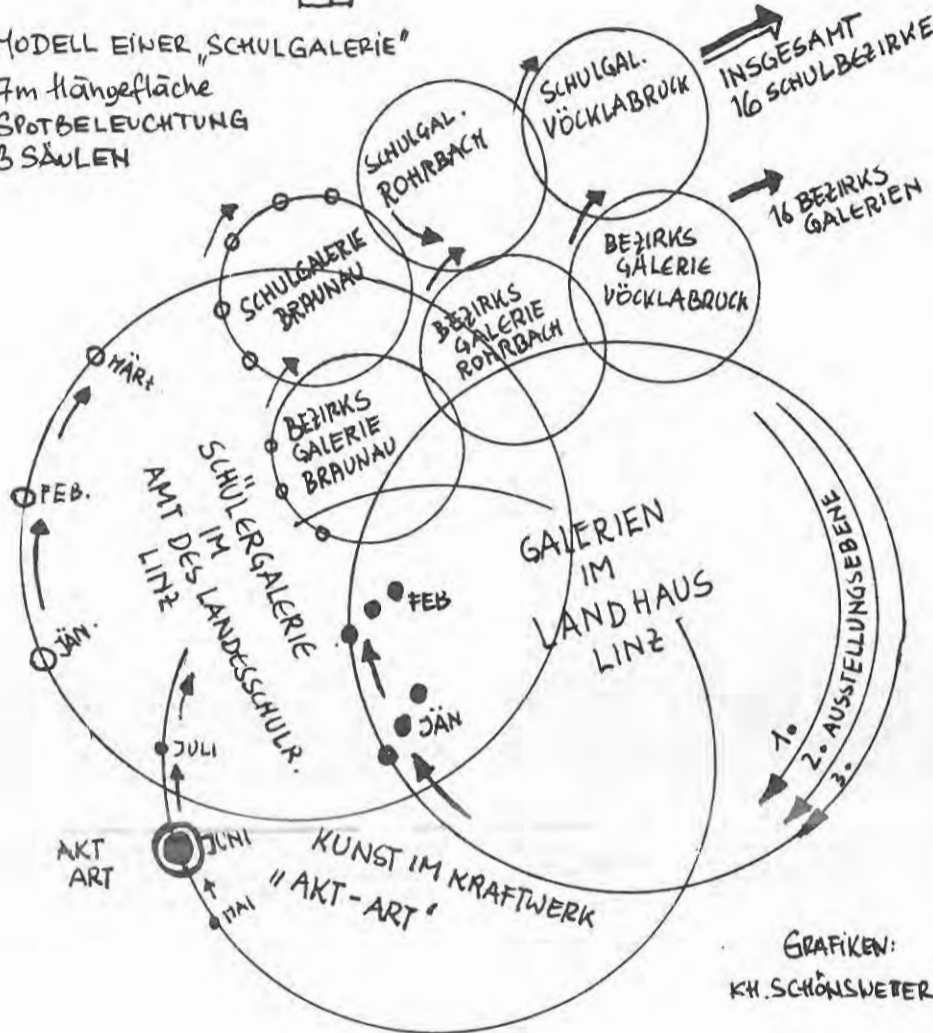 MODELL EINER „SCHULGALERIE"
7m Hängefläche
SPOTBELEUCHTUNG
3 SÄULEN
SCHULGAL.
ROHRBACH
SCHULGAL.
VÖCKLABRUCK
INSGESAMT
16 SCHULBEZIRKE
16 BEZIRKS
GALERIEN
SCHULGALERIE
BRAUNAU
BEZIRKS
GALERIE
ROHRBACH
BEZIRKS
GALERIE
VÖCKLABRUCK
BEZIRKS
GALERIE
BRAUNAU
MÄRZ
FEB.
JÄN.
SCHÜLERGALERIE
IM
AMT DES LANDESSCHULR.
LINZ
GALERIEN
IM
LANDHAUS
LINZ
FEB
JÄN
1.
2. AUSSTELLUNGSEBENE
3.
JULI
JUNI
MAI
AKT
ART
KUNST IM KRAFTWERK
"AKT-ART"
GRAFIKEN:
KH. SCHÖNSWETTER